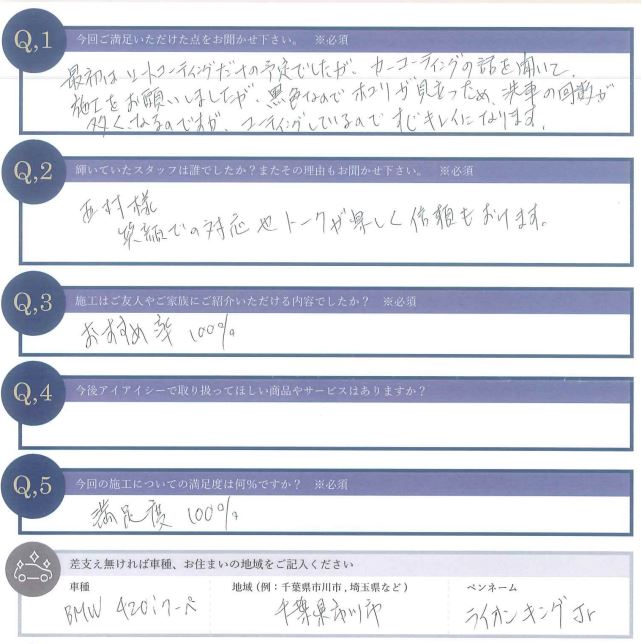 Q,1 今回ご満足いただけた点をお聞かせ下さい。 ※必須
最初はシートコーティングだけの予定でしたが、カーコーティングの話を聞いて、
施工をお願いしましたが、黒色なのでホコリが目立つため、洗車の回数が
多くなるのですが、コーティングしているのですぐキレイになります。
Q,2 輝いていたスタッフは誰でしたか？またその理由もお聞かせ下さい。 ※必須
西村様
笑顔での対応やトークが楽しく信頼もおけます。
Q,3 施工はご友人やご家族にご紹介いただける内容でしたか？ ※必須
おすすめ率 100%
Q,4 今後アイアイシーで取り扱ってほしい商品やサービスはありますか？
Q,5 今回の施工についての満足度は何%ですか？ ※必須
満足度 100%
差支え無ければ車種、お住まいの地域をご記入ください
車種 地域 (例：千葉県市川市, 埼玉県など) ペンネーム
BMW 420iクーペ 千葉県市川市 ライオンキングJr